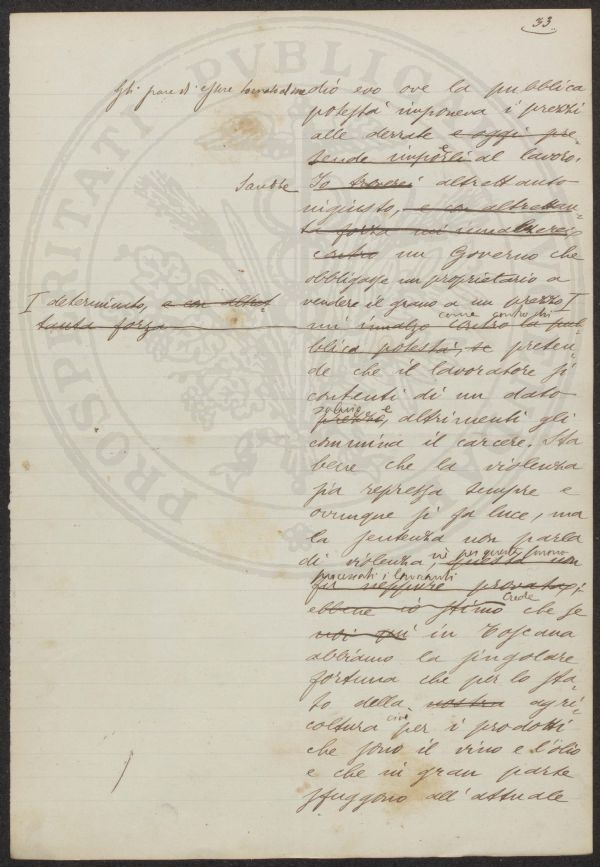 33
PROSPERITATI PUBLICAE
Gli pare di essere tornato al me dio evo ove la pubblica
potestà imponeva i prezzi
alle derrate e oggi pre-
tende imporli al lavoro.
Sarebbe Io troverei altrettanto
ingiusto, e con altrettan-
ta forza mi innalzerei
contro un Governo che
obbligasse un proprietario a
vendere il grano a un prezzo I
I determinato, e con altret-
tanta forza
come contro chi
mi innalzo contro la pub-
blica potestà, se preten-
de che il lavoratore si
contenti di un dato
salario e
prezzo, altrimenti gli
commina il carcere. Sta
bene che la violenza
sia repressa sempre e
ovunque si fa luce, ma
la sentenza non parla
di violenza, nè per questa furono
questa non
processati i lavoranti
fu neppure provata;
ebbene io stimo Crede che se
noi qui in Toscana
abbiamo la singolare
fortuna che per lo sta-
to della nostra agri-
coltura cioè per i prodotti
che sono il vino e l'olio
e che in gran parte
sfuggono all'attuale